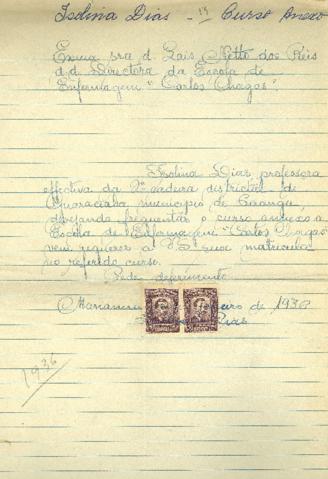 Isolina Dias - 13 Curso Anexo
Exma sra d. Lais Netto dos Reis
d.d. Directora da Escola de
Enfermagem "Carlos Chagas".
Isolina Dias, professora
effectiva da 2ª cadeira districtal de
Guaraciaba, municipio de
desejando frequentar o curso annexo a
Escola de Enfermagem "Carlos Chagas"
vem requerer a V. S. sua matricula
no referido curso.
Pede deferimento
de 1936
Dias
1936